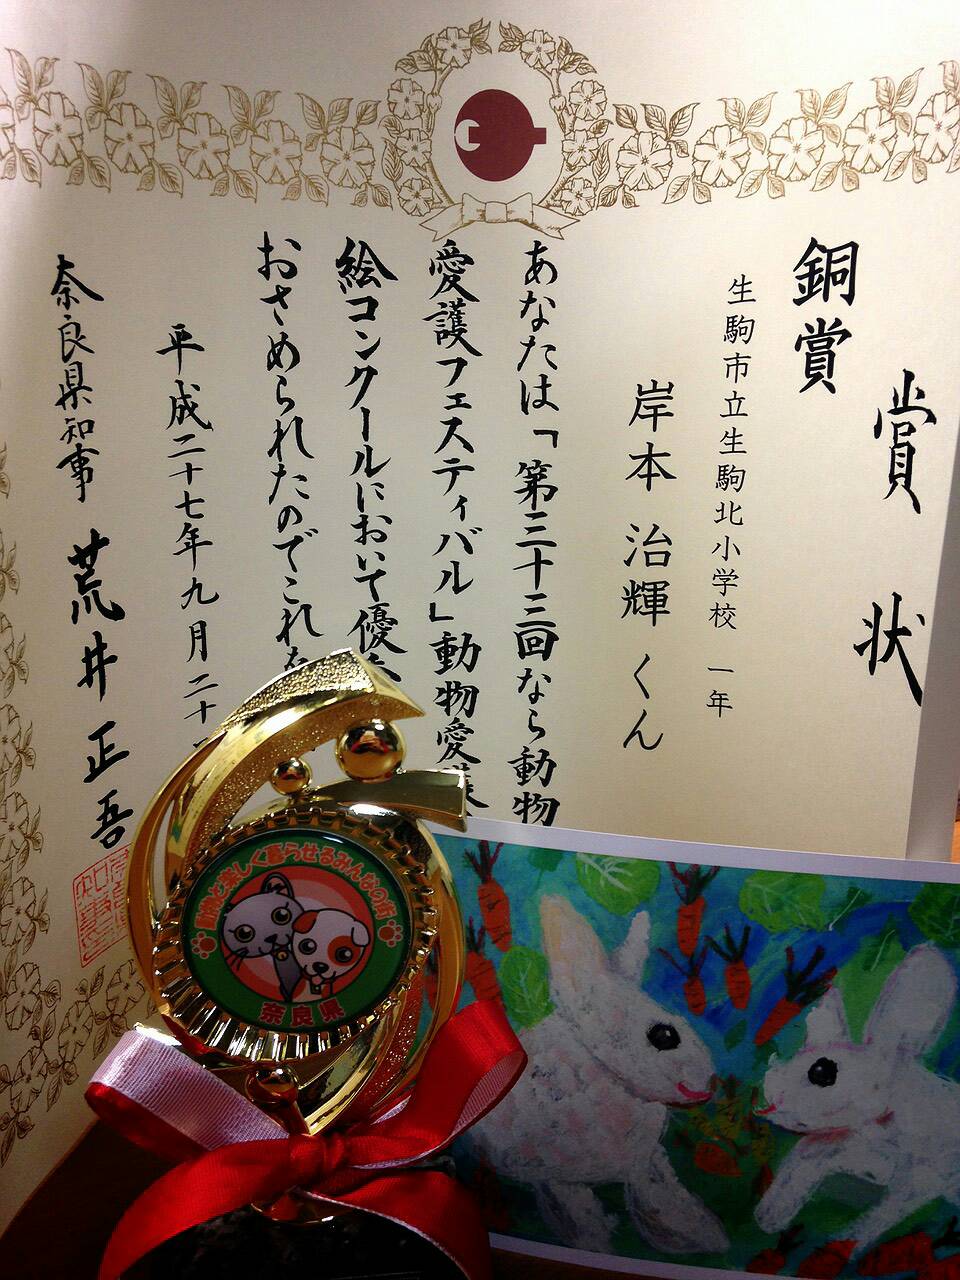 賞状
銅賞
生駒市立生駒北小学校 一年
岸本 治輝 くん
あなたは「第三十三回なら動物
愛護フェスティバル」動物愛護
絵コンクールにおいて優秀
おさめられたのでこれを
平成二十七年九月二十
奈良県知事 荒井 正吾
動物と楽しく暮らせるみんなの街
奈良県